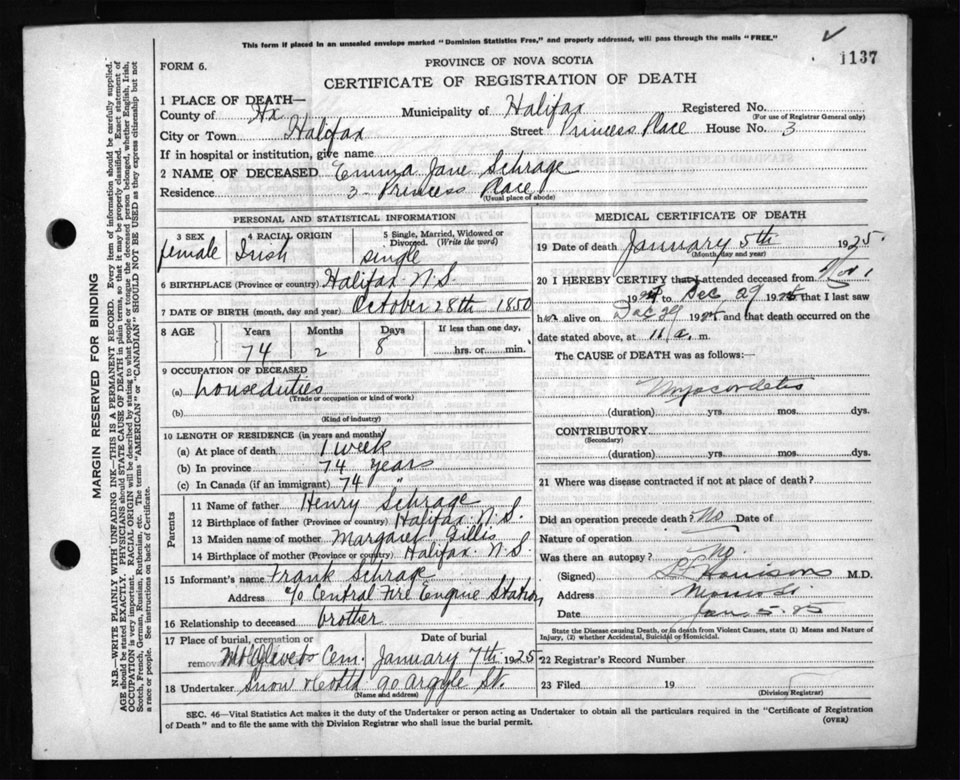 This form if placed in an unsealed envelope marked "Dominion Statistics Free," and properly addressed, will pass through the mails "FREE."
1137
FORM 6.
PROVINCE OF NOVA SCOTIA
CERTIFICATE OF REGISTRATION OF DEATH
1 PLACE OF DEATH—
County of Hx Municipality of Halifax Registered No.
(For use of Registrar General only)
City or Town Halifax Street Princess Place House No. 3
If in hospital or institution, give name
2 NAME OF DECEASED Emma Jane Schrage
Residence 3 Princess Place
(Usual place of abode)
PERSONAL AND STATISTICAL INFORMATION
3 SEX female
4 RACIAL ORIGIN Irish
5 Single, Married, Widowed or Divorced. (Write the word) single
6 BIRTHPLACE (Province or country) Halifax N.S.
7 DATE OF BIRTH (month, day and year) October 28th 1850
8 AGE Years Months Days If less than one day,
74 2 8 hrs. or min.
9 OCCUPATION OF DECEASED
(a) houseduties
(Trade or occupation or kind of work)
(b)
(Kind of industry)
10 LENGTH OF RESIDENCE (in years and months)
(a) At place of death 1 week
(b) In province 74 years
(c) In Canada (if an immigrant) 74 "
Parents
11 Name of father Henry Schrage
12 Birthplace of father (Province or country) Halifax N.S.
13 Maiden name of mother Margaret Gillis
14 Birthplace of mother (Province or country) Halifax N.S.
15 Informant's name Frank Schrage
Address c/o Central Fire Engine Station
16 Relationship to deceased brother
17 Place of burial, cremation or removal Date of burial
Mt Olivet Cem. January 7th 1925
18 Undertaker Snow & Co Ltd 90 Argyle St.
(Name and address)
MEDICAL CERTIFICATE OF DEATH
19 Date of death January 5th 1925.
(Month, day and year)
20 I HEREBY CERTIFY that I attended deceased from Nov 1
1924 to Dec 29 1924 that I last saw
her alive on Dec 29 1924 and that death occurred on
date stated above, at 11 a. m.
The CAUSE OF DEATH was as follows:—
(duration) yrs. mos. dys.
CONTRIBUTORY
(Secondary)
(duration) yrs. mos. dys.
21 Where was disease contracted if not at place of death?
Did an operation precede death? No Date of
Nature of operation
Was there an autopsy? No.
(Signed) M.D.
Address Morris St
Date Jan 5-25
State the Disease causing Death, or in death from Violent Causes, state (1) Means and Nature of
Injury, (2) whether Accidental, Suicidal or Homicidal.
22 Registrar's Record Number
23 Filed 19
(Division Registrar)
SEC. 46—Vital Statistics Act makes it the duty of the Undertaker or person acting as Undertaker to obtain all the particulars required in the "Certificate of Registration
of Death" and to file the same with the Division Registrar who shall issue the burial permit.
(OVER)
MARGIN RESERVED FOR BINDING
N.B.—WRITE PLAINLY WITH UNFADING INK—THIS IS A PERMANENT RECORD. Every item of information should be carefully supplied.
AGE should be stated EXACTLY. PHYSICIANS should STATE CAUSE OF DEATH in plain terms, so that it may be properly classified. Exact statement of
OCCUPATION is very important. RACIAL ORIGIN will be described by stating to what people or tongue the deceased person belonged, whether English, Irish,
Scotch, French, German, Russian, Ruthenian, etc. The terms "AMERICAN" or "CANADIAN" SHOULD NOT BE USED as they express citizenship but not
a race or people. See instructions on back of Certificate.